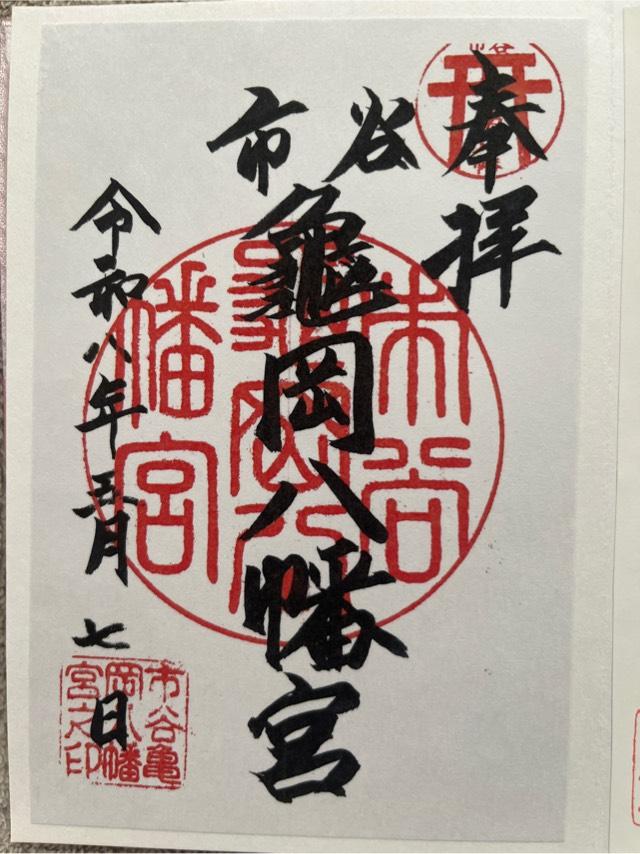 奉拝
市谷
龜岡八幡宮
令和八年五月七日
市谷
龜岡八
幡宮
市谷亀
岡八幡
宮之印